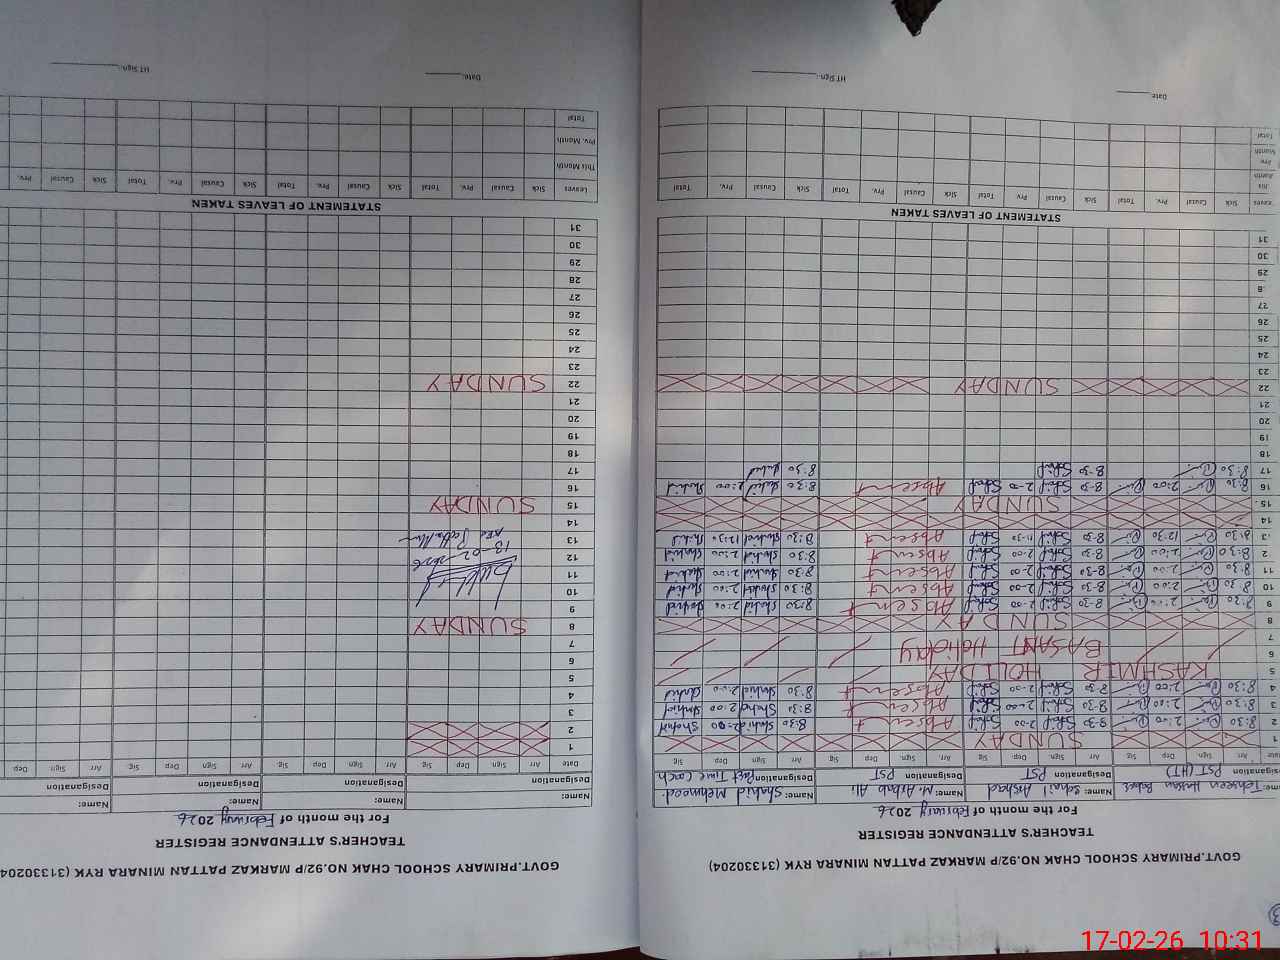 GOVT.PRIMARY SCHOOL CHAK NO.92/P MARKAZ PATTAN MINARA RYK (31330204)
TEACHER'S ATTENDANCE REGISTER
For the month of February 2026
Name: Sohail Arshad Name: M. Arbab Ali Name: Shahid Mehmood
Designation PST (HT) Designation PST Designation PST Designation Part Time Coach
Date Arr Sign. Dep Sig Arr Sign. Dep Sig Arr Sign. Dep Sig Arr Sign. Dep Sig
1 SUNDAY
2 8:30 2:00 8-30 Sohail 2-00 Sohail Absent 8:30 Shahid 2:00 Shahid
3 8:30 2:00 8-30 Sohail 2-00 Sohail Absent 8:30 Shahid 2:00 Shahid
4 8:30 2:00 8-30 Sohail 2-00 Sohail Absent 8:30 Shahid 2:00 Shahid
5 KASHMIR HOLIDAY
6 BASANT Holiday
7
8 SUNDAY
9 8:30 2:00 8-30 Sohail 2-00 Sohail Absent 8:30 Shahid 2:00 Shahid
10 8:30 2:00 8-30 Sohail 2-00 Sohail Absent 8:30 Shahid 2:00 Shahid
11 8:30 2:00 8-30 Sohail 2-00 Sohail Absent 8:30 Shahid 2:00 Shahid
2 8:30 2:00 8-30 Sohail 2-00 Sohail Absent 8:30 Shahid 2:00 Shahid
3 8:30 12:30 8-30 Sohail 11-30 Sohail Absent 8:30 Shahid 12:30 Shahid
14
15 SUNDAY
16 8:30 2:00 8-30 Sohail 2-00 Sohail Absent 8:30 Shahid 2:00 Shahid
17 8:30 8-30 Sohail 8:30 Shahid
18
19
20
21
22 SUNDAY
23
24
25
26
27
8
29
30
31
STATEMENT OF LEAVES TAKEN
Leaves Sick Causal Prv. Total Sick Causal Prv. Total Sick Causal Prv. Total Sick Causal Prv. Total
This Month
Prv. Month
Total
Date: HT Sign:
GOVT.PRIMARY SCHOOL CHAK NO.92/P MARKAZ PATTAN MINARA RYK (31330204
TEACHER'S ATTENDANCE REGISTER
For the month of February 2026
Name: Name: Name:
Designation Designation Designation
Date Arr Sign Dep Sig Arr Sign Dep Sig Arr Sign Dep Sig Arr Sign Dep
1
2
3
4
5
6
7
8 SUNDAY
9
10
11
12 13-02-2026
13 AEO
14
15 SUNDAY
16
17
18
19
20
21
22 SUNDAY
23
24
25
26
27
28
29
30
31
STATEMENT OF LEAVES TAKEN
Leaves Sick Causal Prv. Total Sick Causal Prv. Total Sick Causal Prv. Total Sick Causal Prv.
This Month
Prv. Month
Total
Date: HT Sign:
17-02-26 10:31